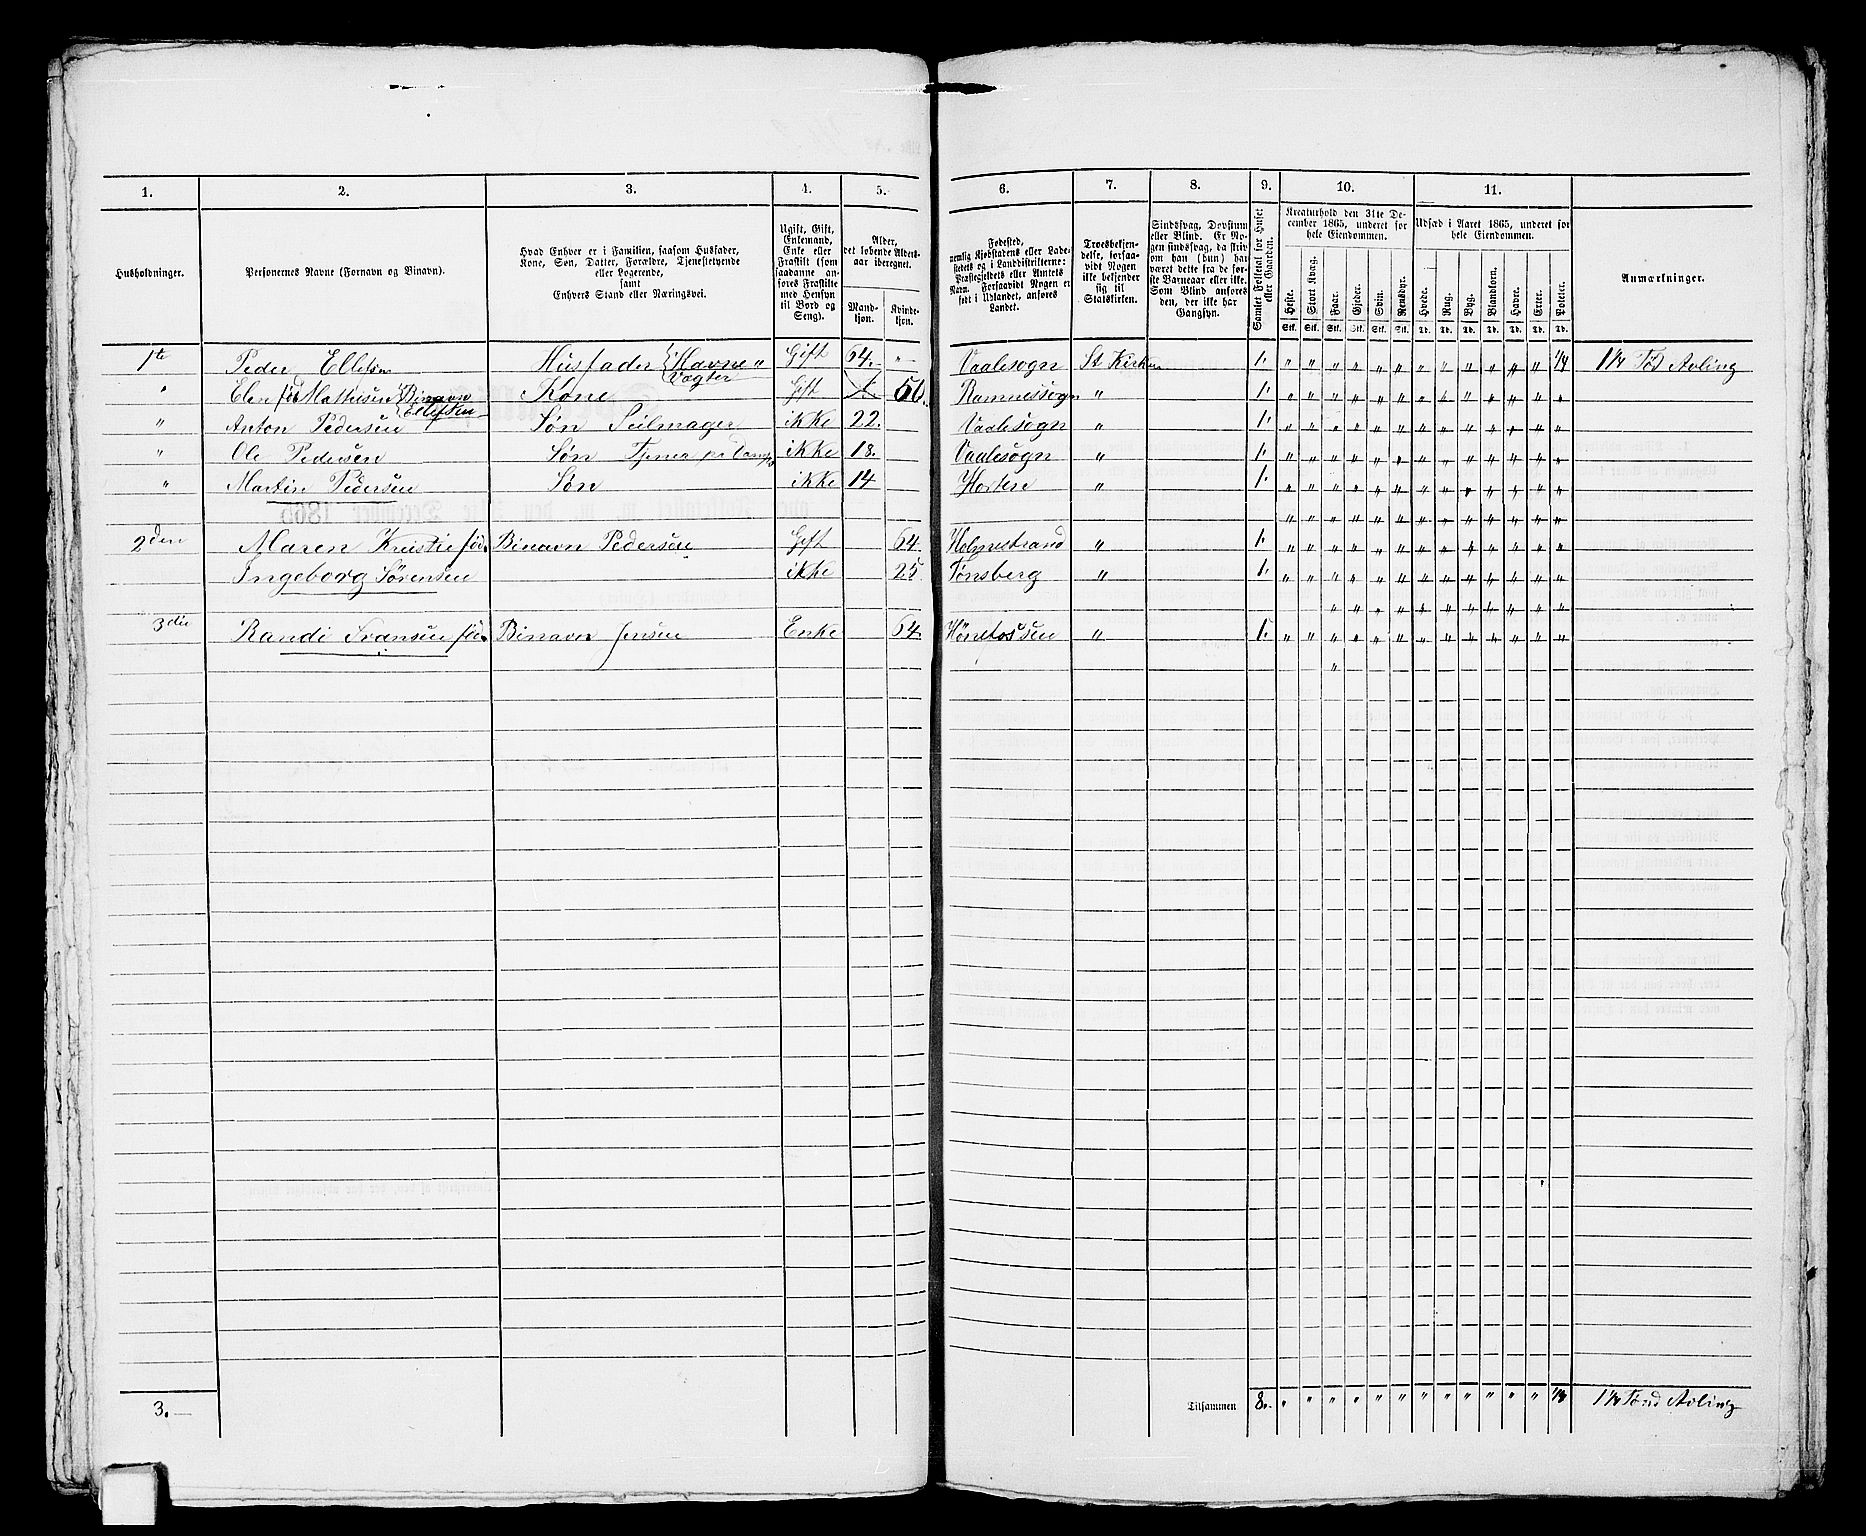 1. 2. 3. 4. 5. 6. 7. 8. 9. 10. 11.
Husholdninger.
Personernes Navne (Fornavn og Binavn).
Hvad Enhver er i Familien, saasom Husfader,
Kone, Søn, Datter, Forældre, Tjenestetyende
eller Logerende,
samt
Enhvers Stand eller Næringsvei.
Ugift, Gift,
Enkemand,
Enke eller
Fraskilt (som
saadanne an-
føres Fraskilte
med Hensyn
til Bord og
Seng).
Alder,
det løbende Alders-
aar iberegnet.
Mand-
kjøn.
Kvinde-
kjøn.
Fødested,
nemlig Kjøbstadens eller Lade-
stedets og i Landdistrikterne:
Præstegjeldets eller Amtets
Navn. Forsaavidt Nogen er
født i Udlandet, anføres
Landet.
Troesbekjen-
delse, forsaa-
vidt Nogen
ikke bekjender
sig til
Statskirken.
Sindssvag, Døvstum
eller Blind. Er No-
gen sindssvag, da skriv
om han (hun) har
været dette fra de før-
ste Barneaar eller ikke.
Som Blind anføres
den, der ikke har
Gangsyn.
Samlet Folketal for Huset
eller Gaarden.
Kreaturhold den 31te De-
cember 1865, underet for
hele Eiendommen.
Heste. Stort Kvæg. Faar. Gjeder. Svin. Rensdyr.
Stk. Stk. Stk. Stk. Stk. Stk.
Udsæd i Aaret 1865, underet for
hele Eiendommen.
Hvede. Rug. Byg. Blandkorn. Havre. Erter. Poteter.
Td. Td. Td. Td. Td. Td. Td.
Anmærkninger.
1te Peder Ellefsen Husfader {Havne " Gift 64. " Vaalesogn St Kirken 1. " " " " " " " " " " " " 1/4 1 1/4 Tød Avling
Vagter
" Elen fød Mattisen {Binavn Kone Gift 50. Ramnessogn " 1. " " " " " " " " " " " " "
{Ellefsen
" Anton Pedersen Søn Seilmager ikke 22. Vaalesogn " 1. " " " " " " " " " " " " "
" Ole Pedersen Søn Tjener ikke 18. Vaalesogn " 1. " " " " " " " " " " " " "
" Martin Pedersen Søn ikke 14 Horten " 1. " " " " " " " " " " " " "
" " " " " " " " " " " " "
2den Maren Kristie fød. Binavn Pedersen Gift 64. Holmestrand " 1. " " " " " " " " " " " " "
Ingeborg Sørensen ikke 25 Tønsberg " 1. " " " " " " " " " " " " "
" " " " " " " " " "
3die Randi Svansen fød. Binavn Jensen Enke 64. Hønefossen " 1. " " " " " " " " " " " " "
"
3.— Tilsammen 8. " " " " " " " " " " " " 1/4 1 1/4 Tønd Avling